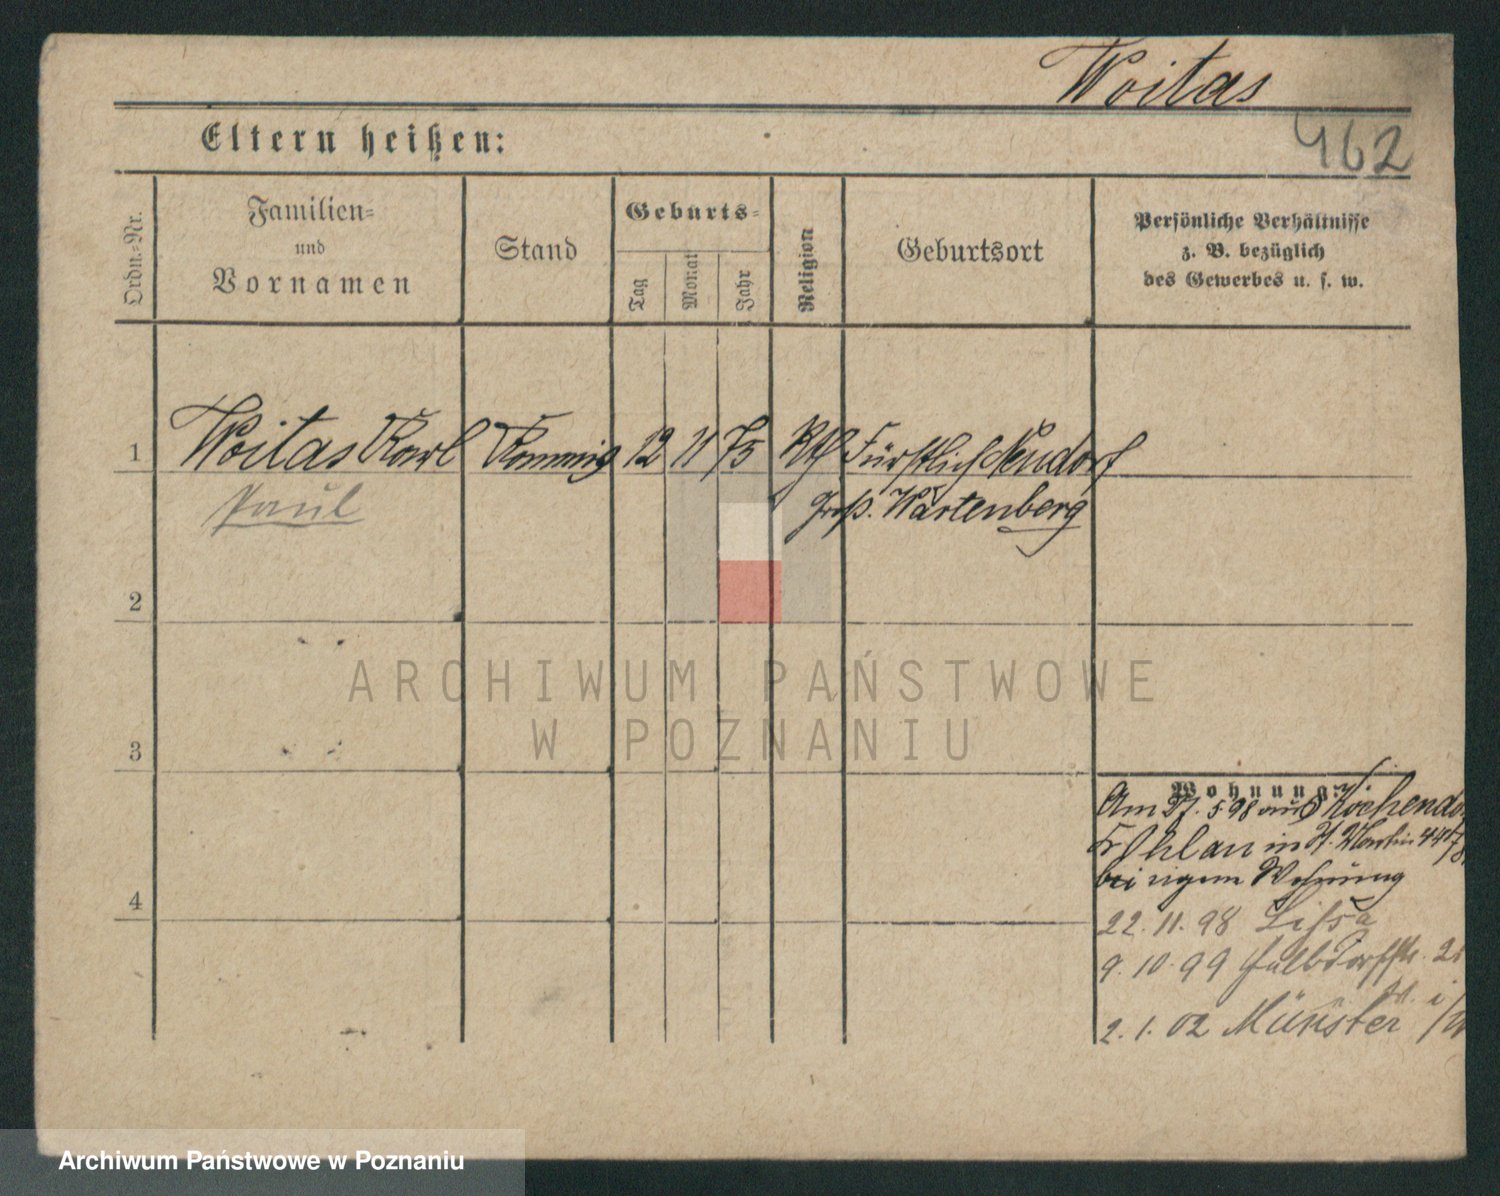 Woitas
462
Eltern heißen:
Ordn.-Nr.
Familien-
und
Vornamen
Stand
Geburts-
Tag
Monat
Jahr
Religion
Geburtsort
Persönliche Verhältnisse
z. B. bezüglich
des Gewerbes u. s. w.
1 Woitas Karl Kommis 12 11 75 Kth Fürstlich Neudorf
Paul
Groß. Wartenberg
2
ARCHIWUM PAŃSTWOWE
W POZNANIU
3
Wohnung:
Am 27. 5 98 aus
Ohlau in St. Martin 44
bei eigene Wohnung
4
22. 11. 98 Lissa
9. 10. 99
2. 1. 02 Münster i/W
Archiwum Państwowe w Poznaniu